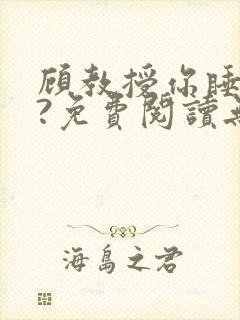 顾教授你睡
?免費閱讀
海島之君